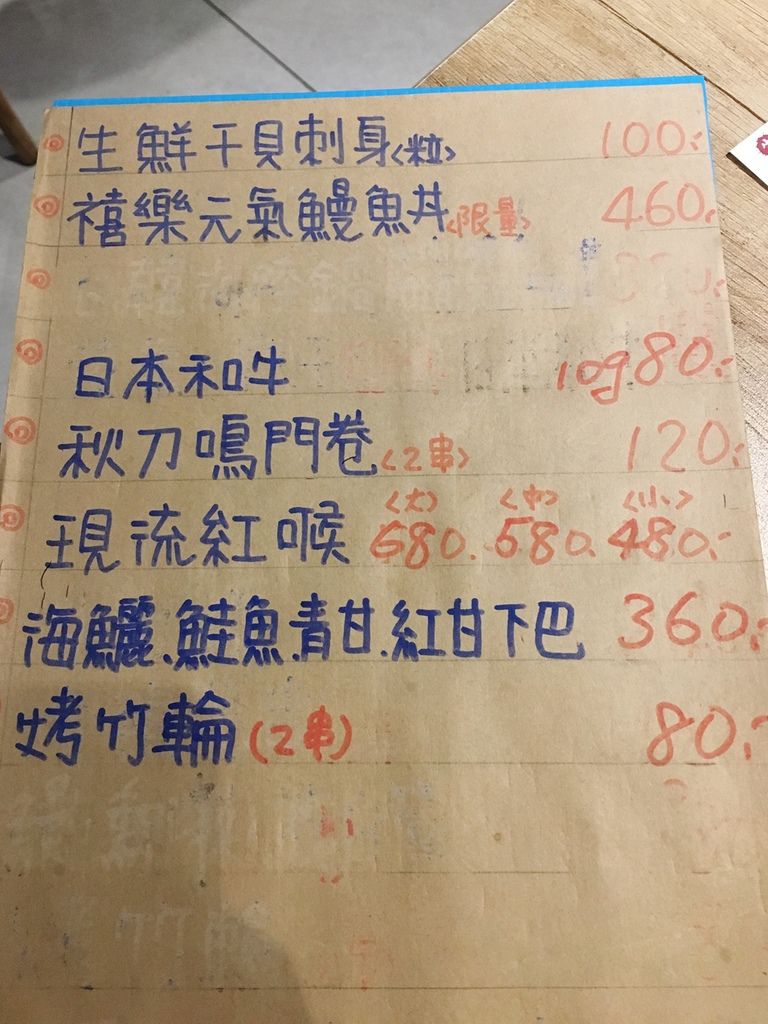 生鮮干貝刺身<粒> 100.-
禧樂元氣鰻魚丼<限量> 460.
日本和牛 10g80.-
秋刀鳴門卷<2串> 120.-
<大> <中> <小>
現流紅喉 680. 580. 480.-
海鱺.鮭魚.青甘.紅甘下巴 360.-
烤竹輪(2串) 80.-